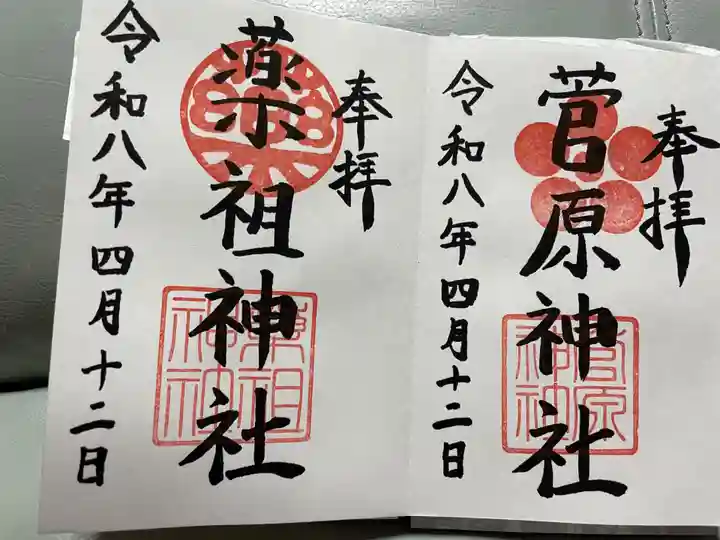 奉拝
菅原神社
令和八年四月十二日
菅原神社
奉拝
薬祖神社
令和八年四月十二日
薬祖神社